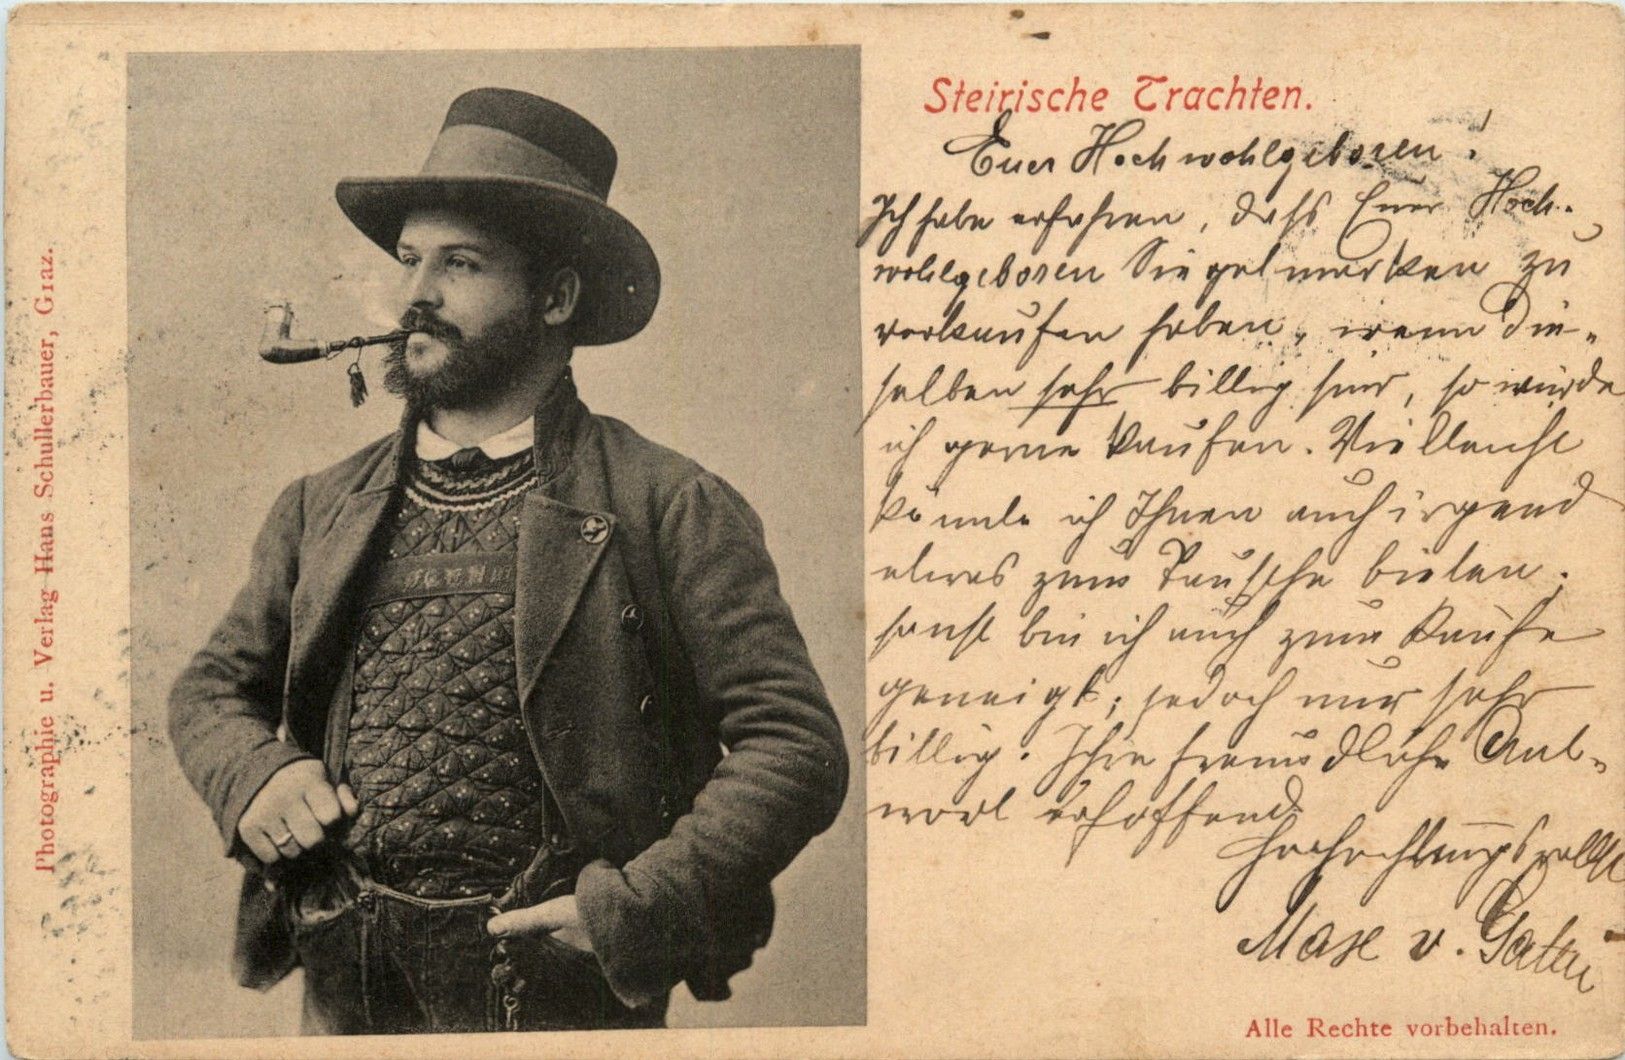 Photographie u. Verlag Hans Schullerbauer, Graz.
Steirische Trachten.
Euer Hochwohlgeboren!
Ich habe erfahren, dass Euer Hoch-
wohlgeboren Siegelmarken zu
verkaufen haben, wenn die-
selben sehr billig sind, so würde
ich gerne kaufen. Vielleicht
könnte ich Ihnen auch irgend
etwas zum Tausche bieten.
sonst bin ich auch zum Kaufe
geneigt; jedoch nur sehr
billig. Ihre freundliche Ant-
wort erhoffend
Hochachtungsvollst
Max v.
Alle Rechte vorbehalten.